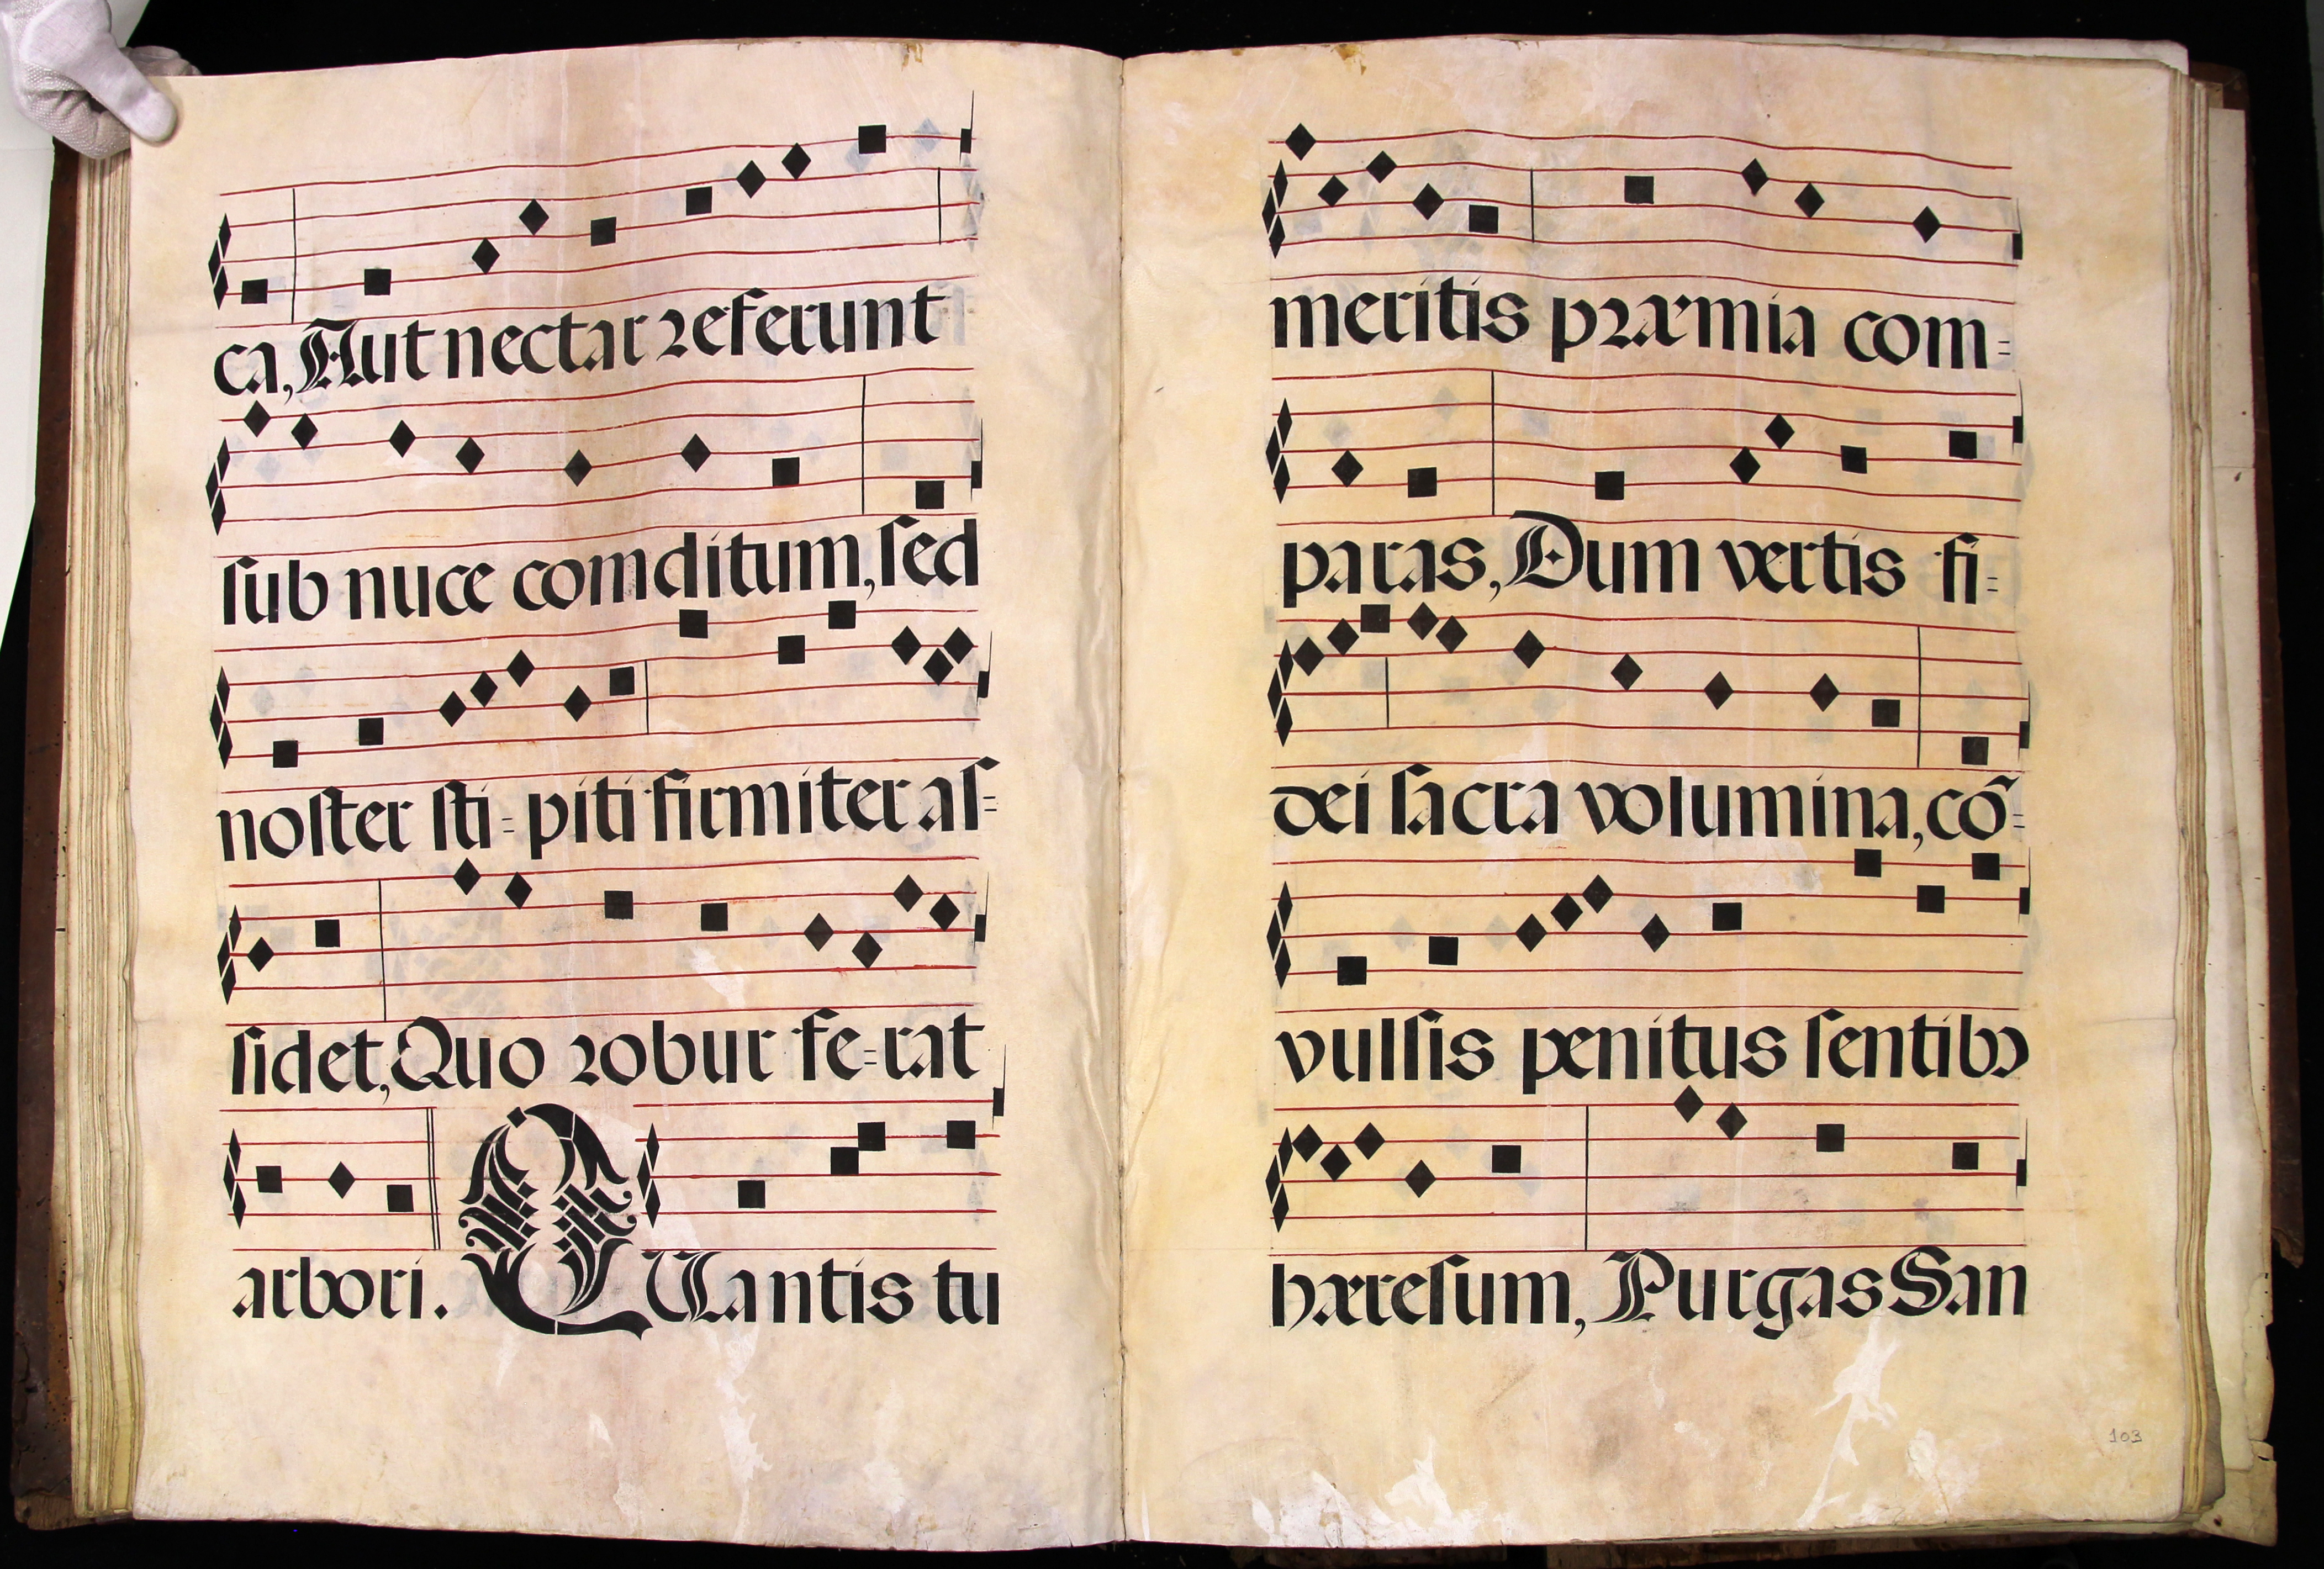 ca, Aut nectar referunt
ſub nuce comditum, ſed
noſter ſti=piti firmiter aſ=
ſidet, Quo robur fe=rat
arbori. QUantis tu
meritis præmia com=
paras, Dum vertis fi=
dei ſacra volumina, cõ=
vulſis penitus ſentibꝰ
hæreſum, Purgas San
103